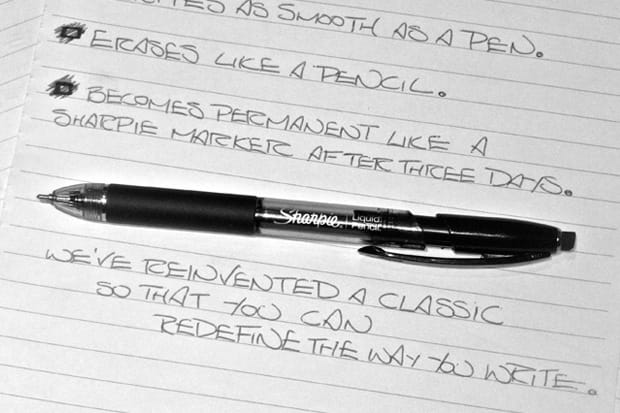 AS SMOOTH AS A PEN.
ERASES LIKE A PENCIL.
BECOMES PERMANENT LIKE A
SHARPIE MARKER AFTER THREE DAYS.
Sharpie. Liquid
Pencil
WE'VE REINVENTED A CLASSIC
SO THAT YOU CAN
REDEFINE THE WAY YOU WRITE.